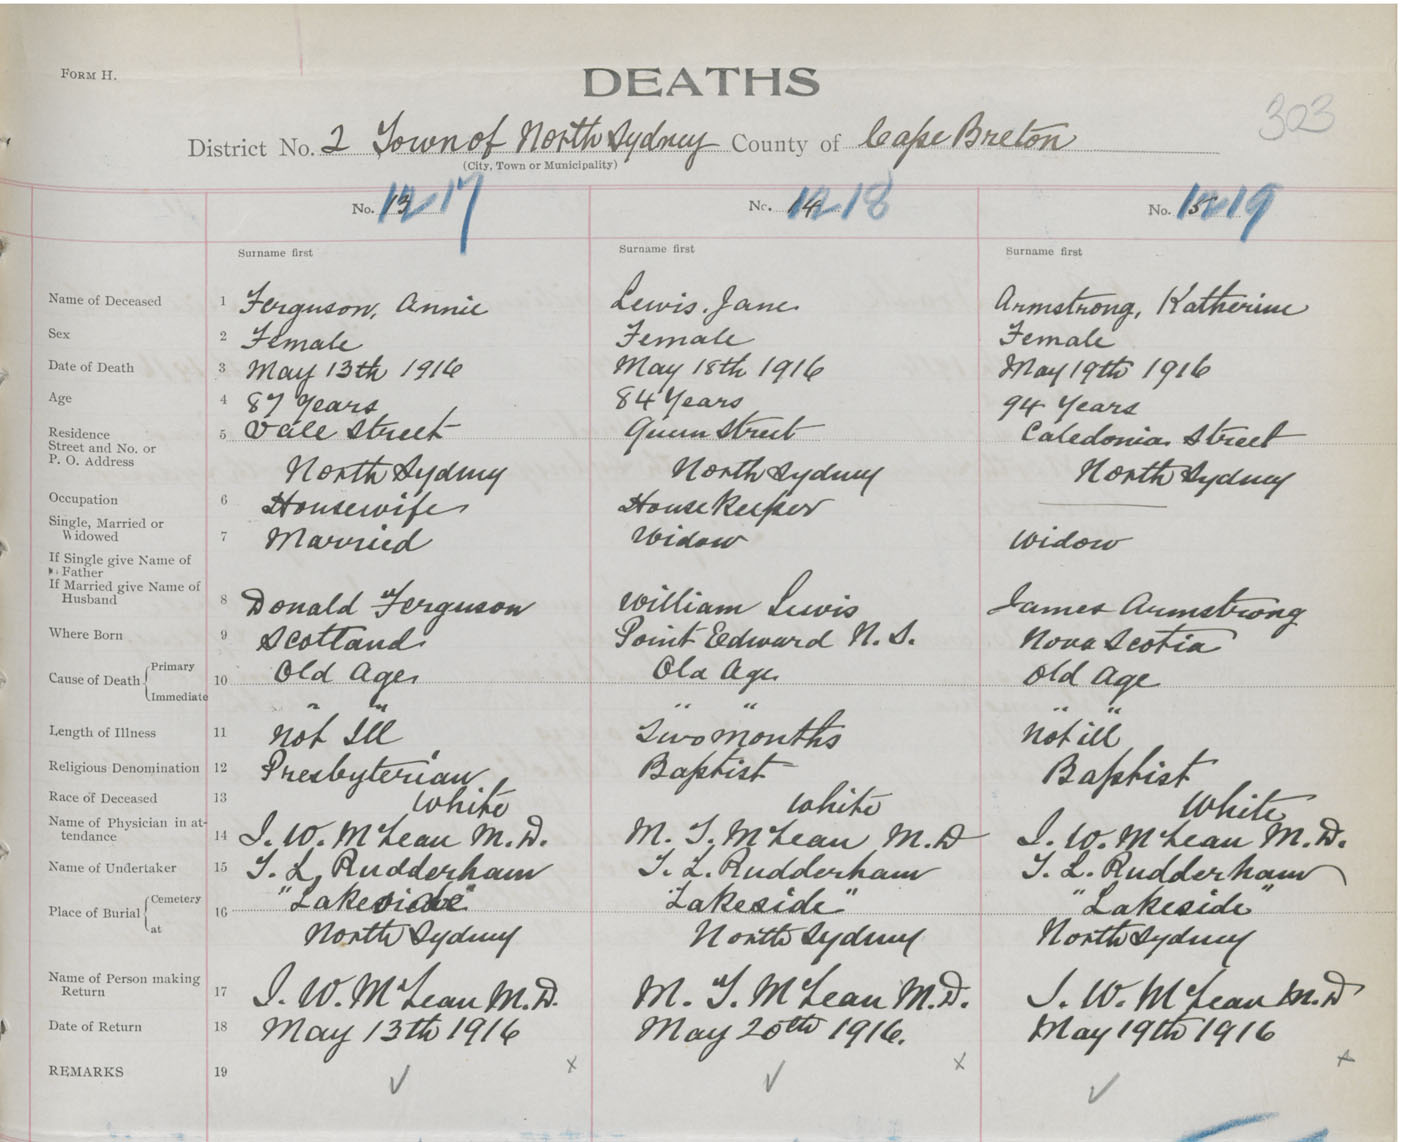 FORM H.
DEATHS
303
District No. 2 Town of North Sydney County of Cape Breton
(City, Town or Municipality)
No. 13 17 No. 14 18 No. 15 19
Surname first Surname first Surname first
Name of Deceased 1 Ferguson, Annie Lewis. Jane Armstrong, Katherine
Sex 2 Female Female Female
Date of Death 3 May 13th 1916 May 18th 1916 May 19th 1916
Age 4 87 Years 84 Years 94 Years
Residence
Street and No. or 5 Vale Street Queen Street Caledonia Street
P. O. Address North Sydney North Sydney North Sydney
Occupation 6 Housewife Housekeeper
Single, Married or
Widowed 7 Married Widow Widow
If Single give Name of
Father
If Married give Name of
Husband 8 Donald Ferguson William Lewis James Armstrong
Where Born 9 Scotland Point Edward N. S. Nova Scotia
Cause of Death Primary 10 Old Age Old Age Old Age
Immediate " " " " " "
Length of Illness 11 Not Ill Two months Not ill
Religious Denomination 12 Presbyterian Baptist Baptist
Race of Deceased 13 White White White
Name of Physician in at-
tendance 14 J. W. McLean M.D. M. T. McLean M.D J. W. McLean M.D.
Name of Undertaker 15 T. L. Rudderham T. L. Rudderham T. L. Rudderham
Place of Burial Cemetery 16 "Lakeside" "Lakeside" "Lakeside"
at North Sydney North Sydney North Sydney
Name of Person making
Return 17 J. W. McLean M.D. M. T. McLean M.D. J. W. McLean M.D
Date of Return 18 May 13th 1916 May 20th 1916. May 19th 1916
REMARKS 19 ✓ x ✓ x ✓ x